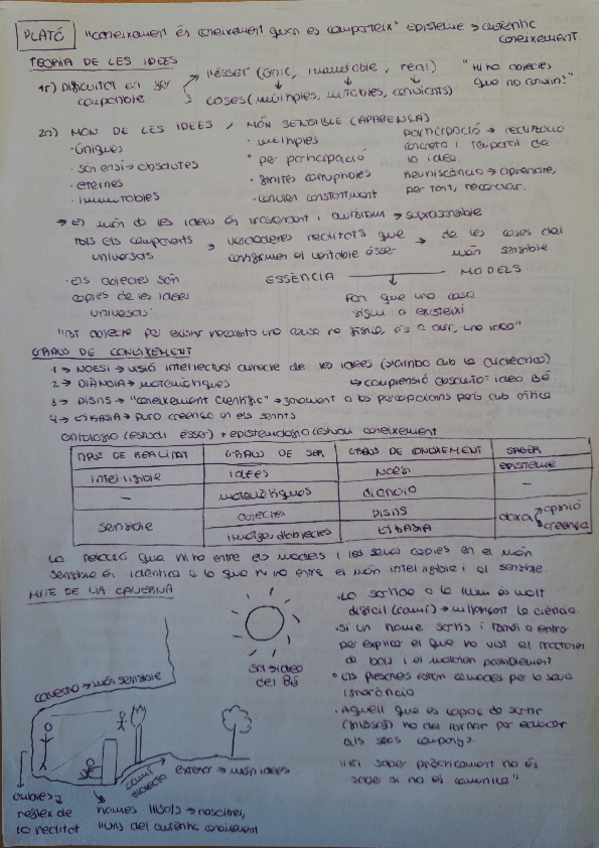 PLATÓ "coneixement és coneixement quan es comparteix" Episteme → autèntic
coneixement
TEORIA DE LES IDEES
1r) Dificultat en ser
compatible
l'ésser (únic, immutable, real)
coses (múltiples, mutables, canviants)
"Hi ha objectes
que no canvien?"
2n) MÓN DE LES IDEES / MÓN SENSIBLE (APARENÇA)
· úniques
· són en si → absolutes
· eternes
· immutables
· múltiples
· per participació
· finites corruptibles
· canvien constantment
participació → realització
concreta i temporal de
la idea.
Reminiscència → aprendre,
per tant, recordar.
→ El món de les idees és transcendent i autònom → suprasensible
Tots els components → vertaderes realitats que → de les coses del
universals configuren el veritable ésser món sensible
· Els objectes són
còpies de les idees
universals:
ESSÈNCIA
MODELS
Per que una cosa
sigui o existeixi
"Tot objecte per existir necessita una causa no física, és a dir, una idea"
GRAUS DE CONEIXEMENT
1 → NOESI → visió intel·lectual directe de les idees (s'arriba amb la dialèctica)
2 → DIÀNOIA → matemàtiques
↳ comprensió absoluta = idea Bé.
3 → PISTIS → "coneixement científic" → sotmesa a les percepcions però amb crítica
4 → EIKASIA → pura creença en els sentits
Ontologia (estudi ésser) + epistemologia (estudi coneixement
TIPUS DE REALITAT GRAUS DE SER GRAUS DE CONEIXEMENT SABER
intel·ligible idees Noesi episteme
- matemàtiques dianoia -
sensible objectes PISTIS doxa opinió
imatges d'objectes EIKASIA creença
La relació que hi ha entre els models i les seves còpies en el món
sensible és idèntica a la que hi ha entre el món intel·ligible i el sensible.
MITE DE LA CAVERNA
caverna → món sensible
sol = idea
del Bé
camí
dialèctic
exterior → món idees
ombres
reflex de
la realitat
homes lligats → nosaltres,
lluny del autèntic coneixement
· La sortida a la llum és molt
difícil (camí) → mitjançant la ciència.
· Si un home sortís i torna a entrar
per explicar el que ha vist el tractarien
de boig i el matarien possiblement
· Els presoners estan còmodes per la seva
ignorància
· Aquell que és capaç de sortir
(filòsof) ha de tornar per educar
als seus companys.
"El saber pràcticament no és
saber si no es comunica"